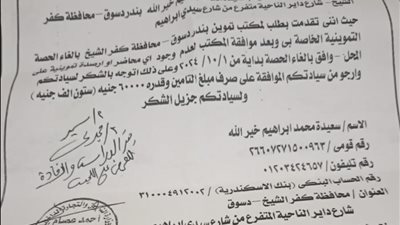 الشيخ – شارع داير الناحية المتفرع من شارع سيدي ابراهيم
حيث اننى تقدمت بطلب لمكتب تموين بندر دسوق – محافظة كفر الشيخ بالغاء الحصة
التموينية الخاصة بى وبعد موافقة المكتب لعدم وجود اي محاضر او ارصدة تموينية على
المحل – وافق بالغاء الحصة بداية من ٢٠٢٤/١٠/١ وعلى ذلك اتوجه بالشكر لسيادتكم
وارجو من سيادتكم الموافقة على صرف مبلغ التامين وقدره ٦٠٠٠٠ جنيه (ستون الف جنيه)
ولسيادتكم جزيل الشكر
الاسم / سعيدة محمد ابراهيم خير الله
رقم قومى / ٢٦٦٠٧٢٧١٥٠٠٩٦٣
رقم تليفون / ٠١٢٠٣٤٢٤٦٥٧
رقم الحساب البنكى (بنك الاسكندرية) / ٣١٠٠٠٤٩١٢٠٠٢
العنوان / محافظة كفر الشيخ – دسوق
شارع داير الناحية المتفرع من شارع سيدي